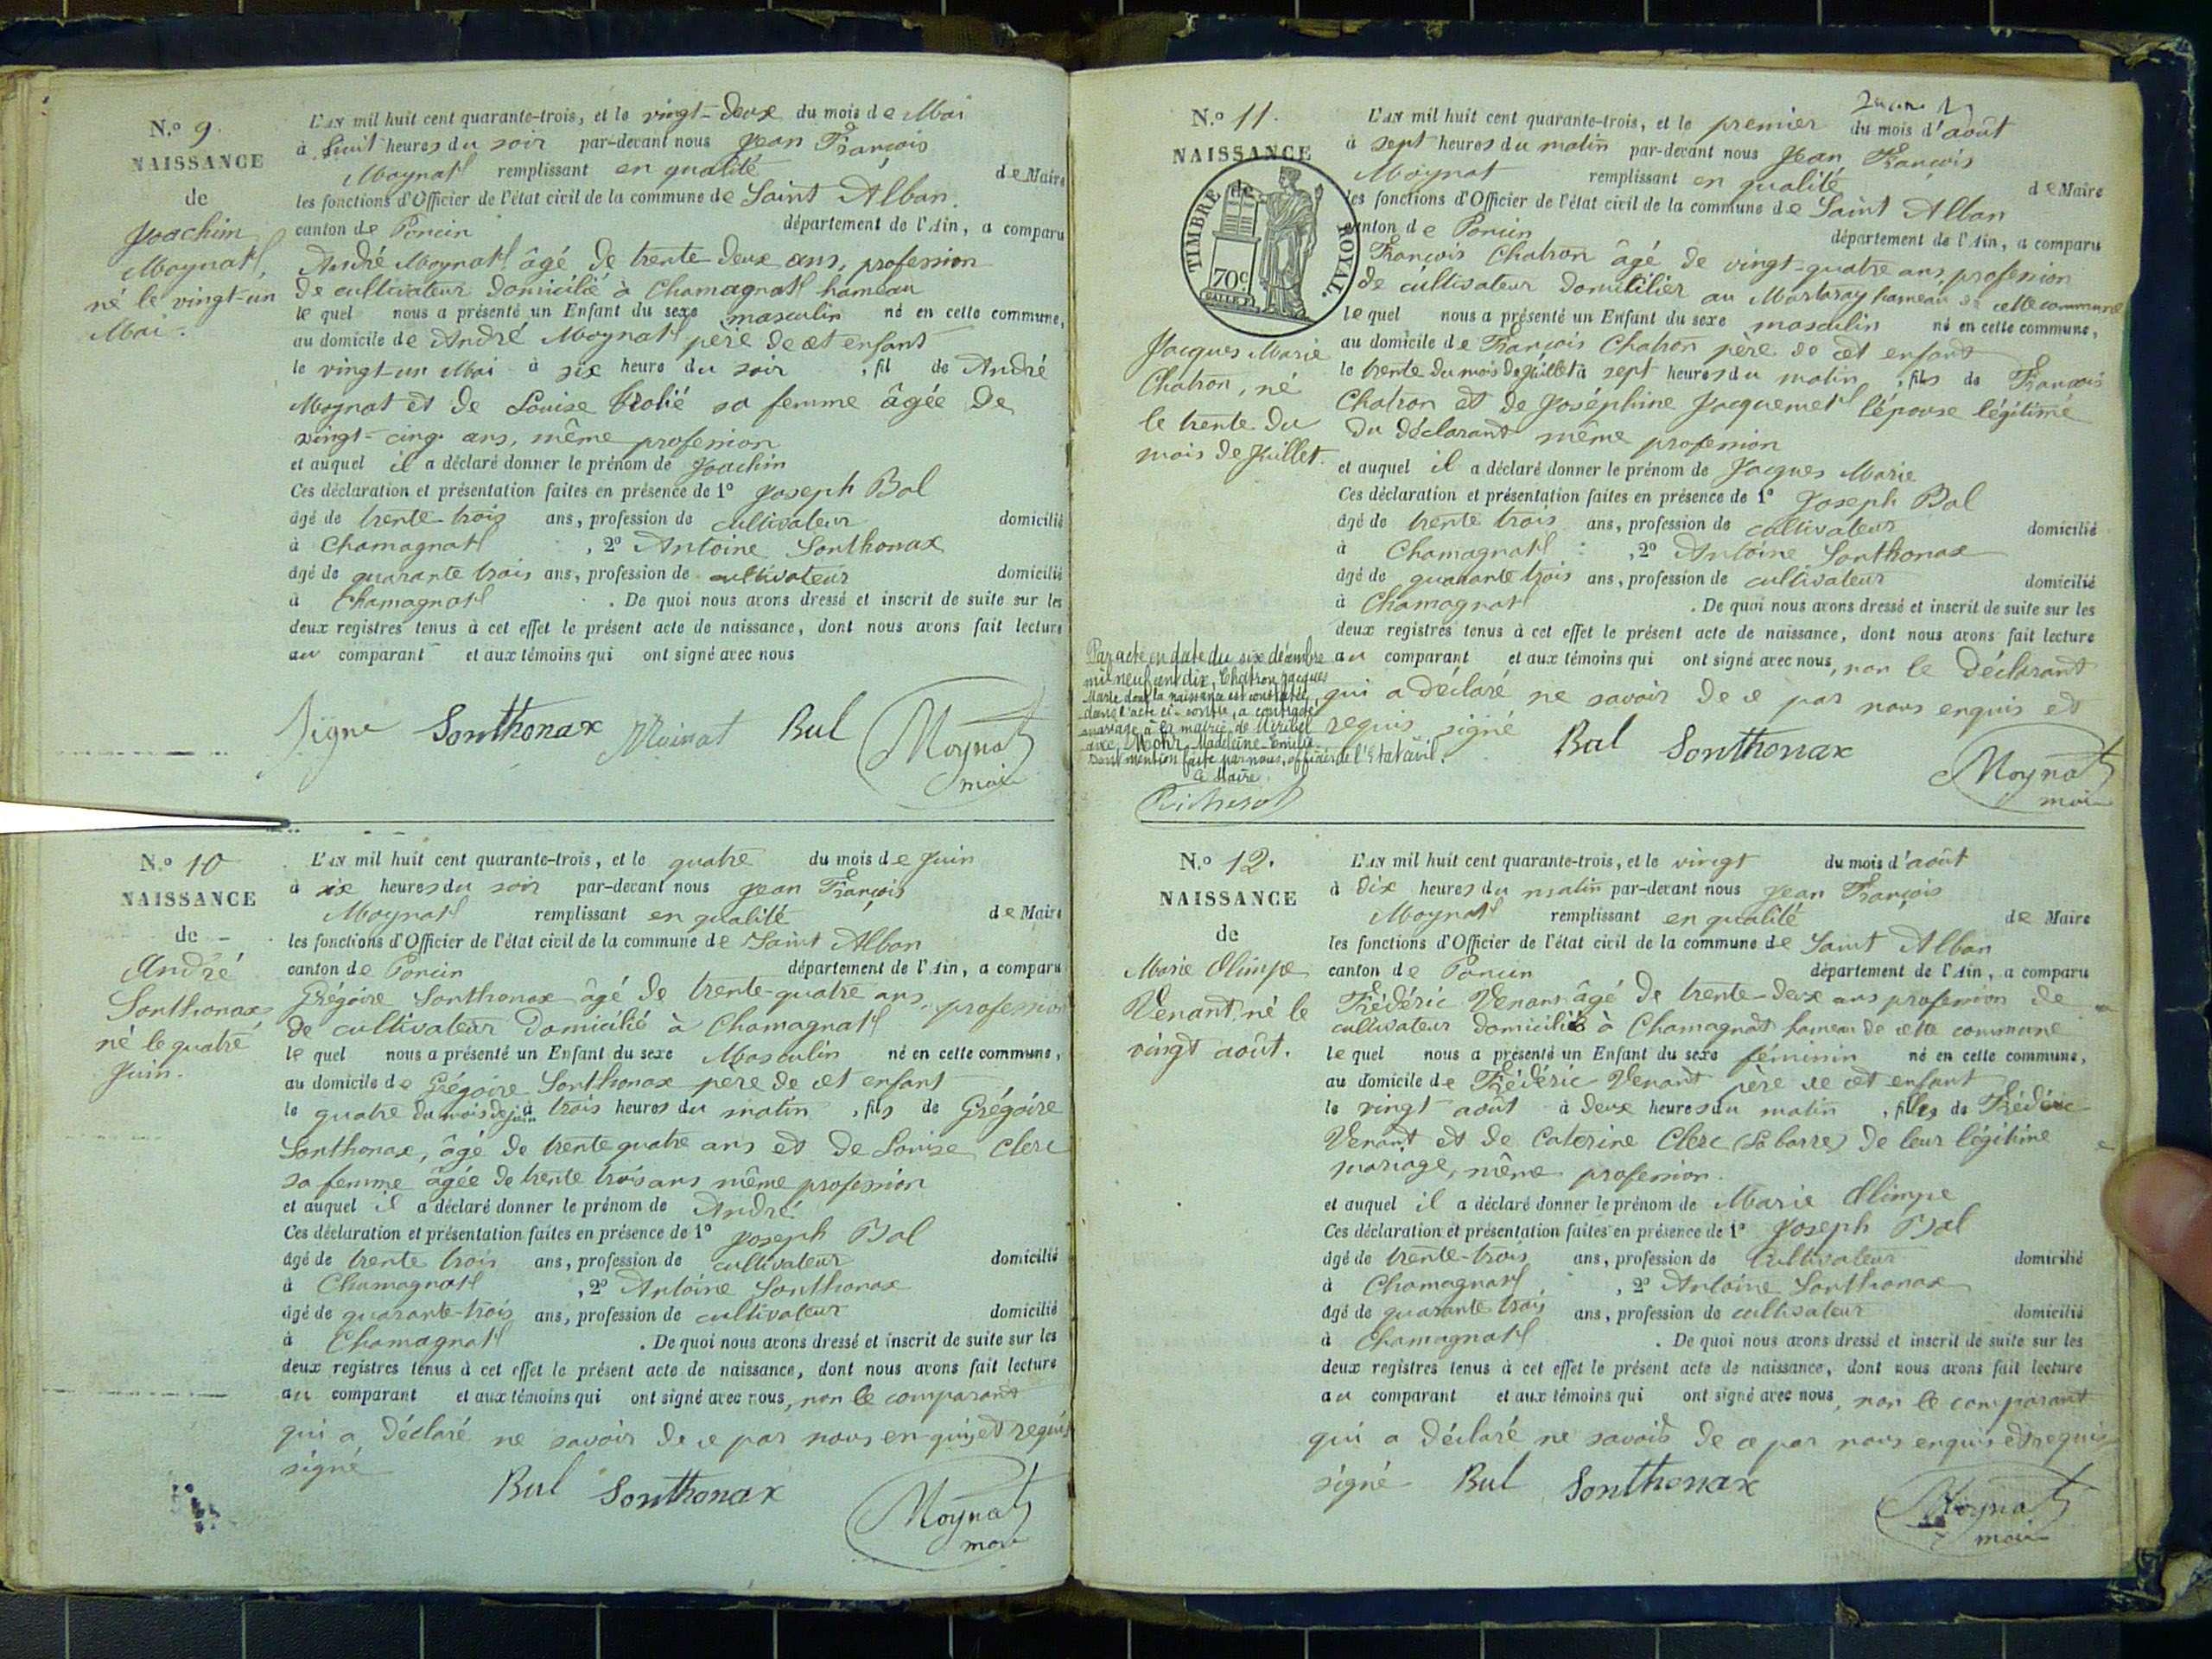 N.° 9.
NAISSANCE
de
Joachim
Moynat,
né le vingt-un
Mai.
L'AN mil huit cent quarante-trois, et le vingt-deux du mois de Mai
à huit heures du soir par-devant nous Jean François
Moynat remplissant en qualité de Maire
les fonctions d'Officier de l'état civil de la commune de Saint Alban.
canton de Poncin département de l'Ain, a comparu
André Moynat âgé de trente deux ans, profession
de cultivateur domicilié à Chamagnat hameau
le quel nous a présenté un Enfant du sexe masculin né en cette commune,
au domicile de André Moynat père de cet enfant
le vingt-un Mai à six heure du soir, fil de André
Moynat et de Louise sa femme âgée de
vingt-cinq ans, même profession
et auquel il a déclaré donner le prénom de Joachim
Ces déclaration et présentation faites en présence de 1° Joseph Bal
âgé de trente-trois ans, profession de cultivateur domicilié
à Chamagnat, 2° Antoine Sonthonax
âgé de quarante trois ans, profession de cultivateur domicilié
à Chamagnat. De quoi nous avons dressé et inscrit de suite sur les
deux registres tenus à cet effet le présent acte de naissance, dont nous avons fait lecture
au comparant et aux témoins qui ont signé avec nous
Signé Sonthonax Moinat Bal Moynat
maire
N.° 10
NAISSANCE
de
André
Sonthonax
né le quatre
Juin.
L'AN mil huit cent quarante-trois, et le quatre du mois de Juin
à six heures du soir par-devant nous Jean François
Moynat remplissant en qualité de Maire
les fonctions d'Officier de l'état civil de la commune de Saint Alban
canton de Poncin département de l'Ain, a comparu
Grégoire Sonthonax âgé de trente-quatre ans, profession
de cultivateur domicilié à Chamagnat
le quel nous a présenté un Enfant du sexe Masculin né en cette commune,
au domicile de Grégoire Sonthonax père de cet enfant
le quatre du mois de juin à trois heures du matin, fils de Grégoire
Sonthonax, âgé de trente quatre ans et de Louise Clerc
sa femme âgée de trente trois ans même profession
et auquel il a déclaré donner le prénom de André
Ces déclaration et présentation faites en présence de 1° Joseph Bal
âgé de trente trois ans, profession de cultivateur domicilié
à Chamagnat, 2° Antoine Sonthonax
âgé de quarante-trois ans, profession de cultivateur domicilié
à Chamagnat. De quoi nous avons dressé et inscrit de suite sur les
deux registres tenus à cet effet le présent acte de naissance, dont nous avons fait lecture
au comparant et aux témoins qui ont signé avec nous, non le comparant
qui a déclaré ne savoir de ce par nous enquis et requis
signé
Bal Sonthonax Moynat
maire
N.° 11.
NAISSANCE
de
TIMBRE ROYAL.
70c
Jacques Marie
Chatron, né
le trente du
mois de Juillet.
L'AN mil huit cent quarante-trois, et le premier du mois d'août
à sept heures du matin par-devant nous Jean François
Moynat remplissant en qualité de Maire
les fonctions d'Officier de l'état civil de la commune de Saint Alban
canton de Poncin département de l'Ain, a comparu
François Chatron âgé de vingt-quatre ans, profession
de cultivateur domicilier au Mortaray hameau de cette commune
le quel nous a présenté un Enfant du sexe masculin né en cette commune,
au domicile de François Chatron père de cet enfant
le trente du mois de Juillet à sept heures du matin, fils de François
Chatron et de Joséphine Jacquemet l'épouse légitime
du déclarant même profession
et auquel il a déclaré donner le prénom de Jacques Marie
Ces déclaration et présentation faites en présence de 1° Joseph Bal
âgé de trente trois ans, profession de cultivateur domicilié
à Chamagnat, 2° Antoine Sonthonax
âgé de quarante trois ans, profession de cultivateur domicilié
à Chamagnat. De quoi nous avons dressé et inscrit de suite sur les
deux registres tenus à cet effet le présent acte de naissance, dont nous avons fait lecture
au comparant et aux témoins qui ont signé avec nous, non le déclarant
qui a déclaré ne savoir de ce par nous enquis et
requis signé
Bal Sonthonax Moynat
maire
Par acte en date du six décembre
mil neuf cent dix, Chatron Jacques
Marie dont la naissance est constatée
dans l'acte ci-contre, a contracté
mariage à la mairie de Miribel
avec Mohr Madeleine Emilie
Dont mention faite par nous, officier de l'Etat civil.
Le Maire.
N.° 12.
NAISSANCE
de
Marie Olimpe
Venant, né le
vingt août.
L'AN mil huit cent quarante-trois, et le vingt du mois d'août
à dix heures du matin par-devant nous Jean François
Moynat remplissant en qualité de Maire
les fonctions d'Officier de l'état civil de la commune de Saint Alban
canton de Poncin département de l'Ain, a comparu
Frédéric Venant âgé de trente-deux ans profession de
cultivateur domicilié à Chamagnat hameau de cette commune
le quel nous a présenté un Enfant du sexe féminin né en cette commune,
au domicile de Frédéric Venant père de cet enfant
le vingt août à deux heures du matin, filles de Frédéric
Venant et de Caterine Clerc (Labarre) de leur légitime
mariage, même profession.
et auquel il a déclaré donner le prénom de Marie Olimpe
Ces déclaration et présentation faites en présence de 1° Joseph Bal
âgé de trente-trois ans, profession de Cultivateur domicilié
à Chamagnat, 2° Antoine Sonthonax
âgé de quarante trois ans, profession de cultivateur domicilié
à Chamagnat. De quoi nous avons dressé et inscrit de suite sur les
deux registres tenus à cet effet le présent acte de naissance, dont nous avons fait lecture
au comparant et aux témoins qui ont signé avec nous, non le comparant
qui a déclaré ne savoir de ce par nous enquis et requis
signé Bal Sonthonax Moynat
maire